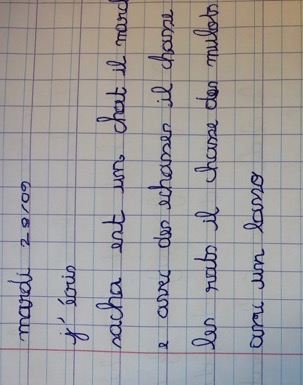 mardi 28/09
j'écris
sacha est un chat il march
e avec des echasses il chasse
les rats il chasse des mulots
avec un lasso